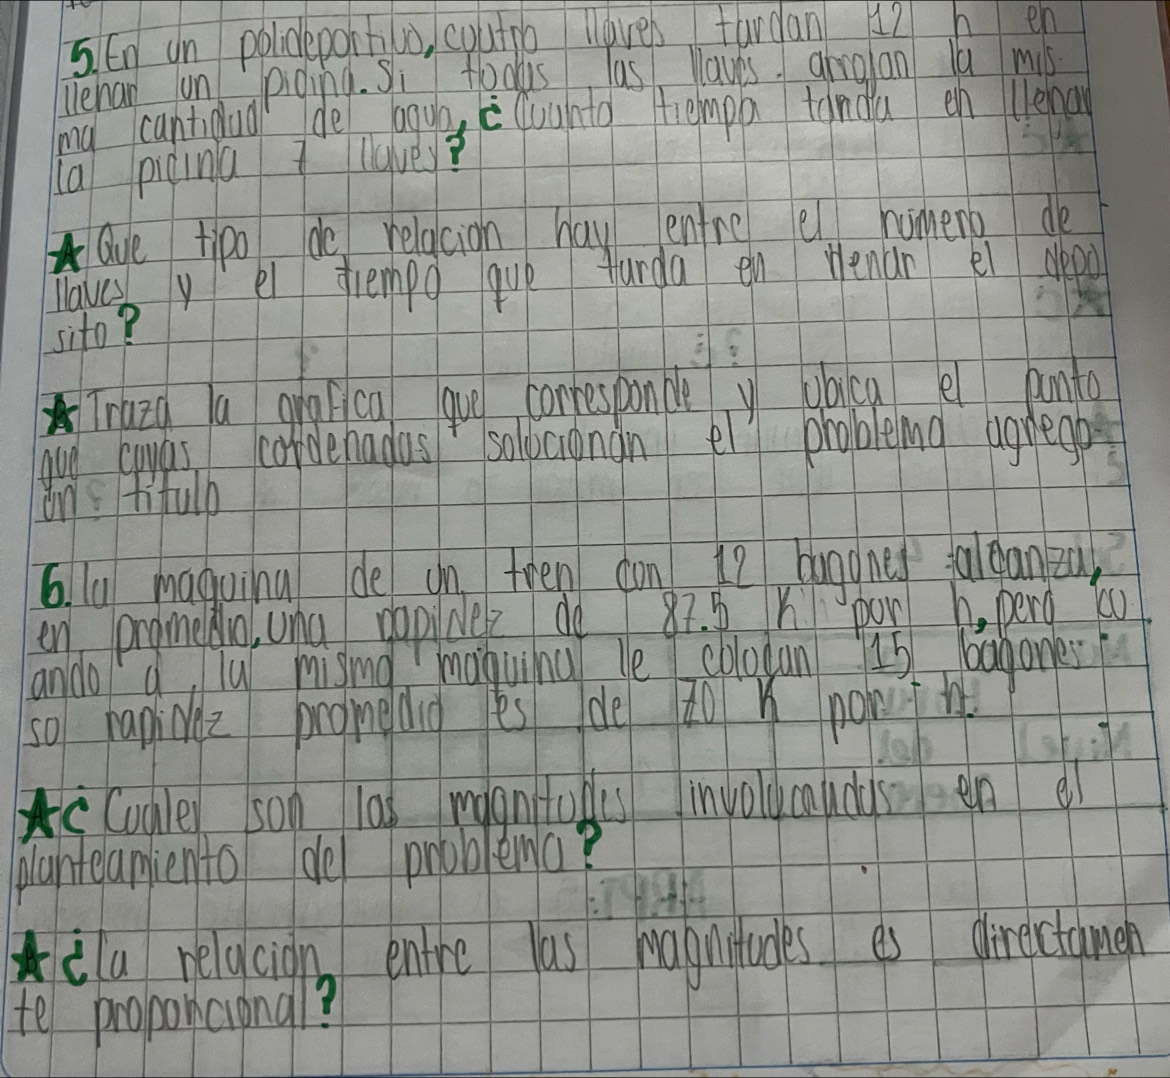 5. En un polideportivo, cuatro llaves tardan 12 h en
llenar un picina. Si todas las llaves arrojan la mis-
ma cantidad de agua, ¿Cuanto tiempo tarda en llenar
la picina 7 llaves?
★ Que tipo de relacion hay entre el número de
llaves y el tiempo que tarda en llenar el depo
sito?
★ Traza la grafica que corresponde y ubica el punto
que cuyas cordenadas solucionan el problema agrega
un titulo
6. la maquina de un tren con 12 bagones alcanza,
en promedio, una rapidez de 87.5 K por h, pero cu
ando a la misma maquina le colocan 15 bagones
so rapidez promedio es de 70 K por h.
★ ¿Cuales son las magnitudes involucradas en el
planteamiento del problema?
★ ¿la relación entre las magnitudes es directamen
te proporcional?